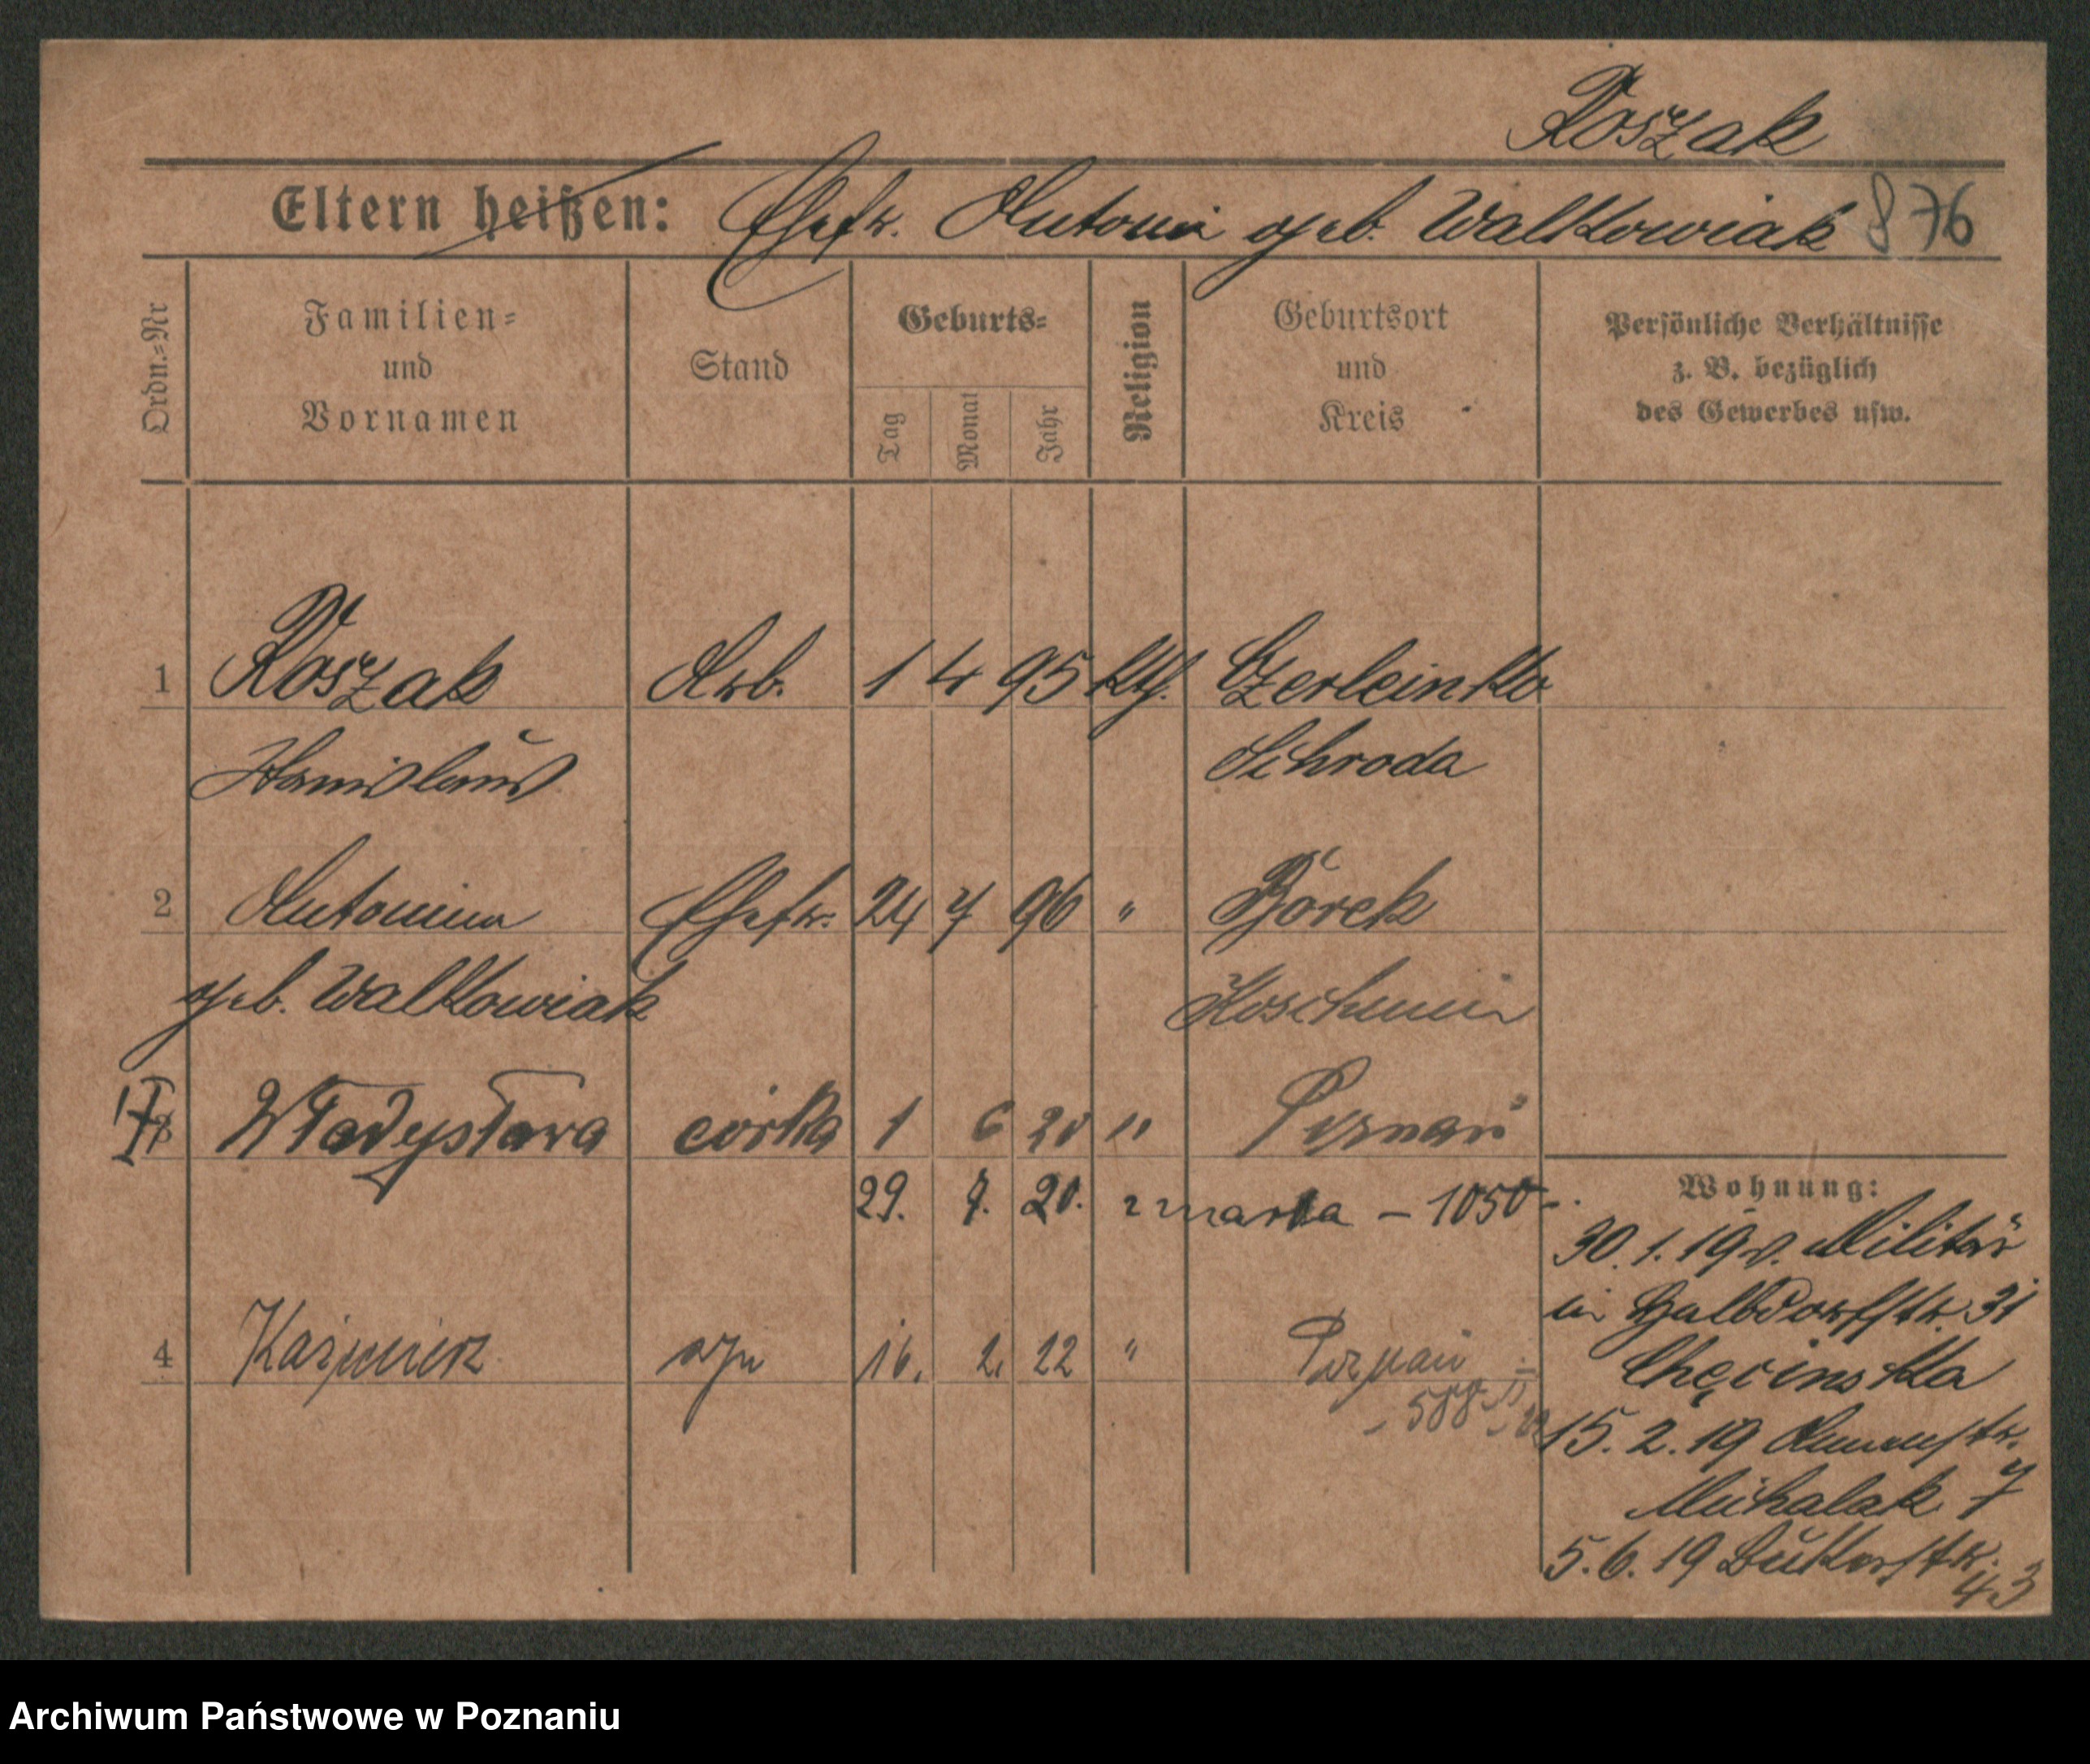 Roszak
Eltern heißen: Ehefr. Antonie geb. Walkowiak 876
Ordn.-Nr
Familien- und Vornamen
Stand
Geburts-
Tag Monat Jahr
Religion
Geburtsort und Kreis
Persönliche Verhältnisse
z. B. bezüglich
des Gewerbes usw.
1 Roszak Arb. 1 4 95 kth. Czerleinko
Stanislaus Schroda
2 Antonina Ehefr. 24 7 96 " Borek
geb. Walkowiak Koschmin
3 Władysława córka 1 6 20 " Poznań
29. 7. 20. zmarła – 1050 –
4 Kazimierz syn 16. 2. 22 " Poznań
Wohnung:
30. 1. 19 v. Militär
in Halbdorfstr. 31
15. 2. 19
Michalak 7
5. 6. 19 Bukerstr.
43
Archiwum Państwowe w Poznaniu